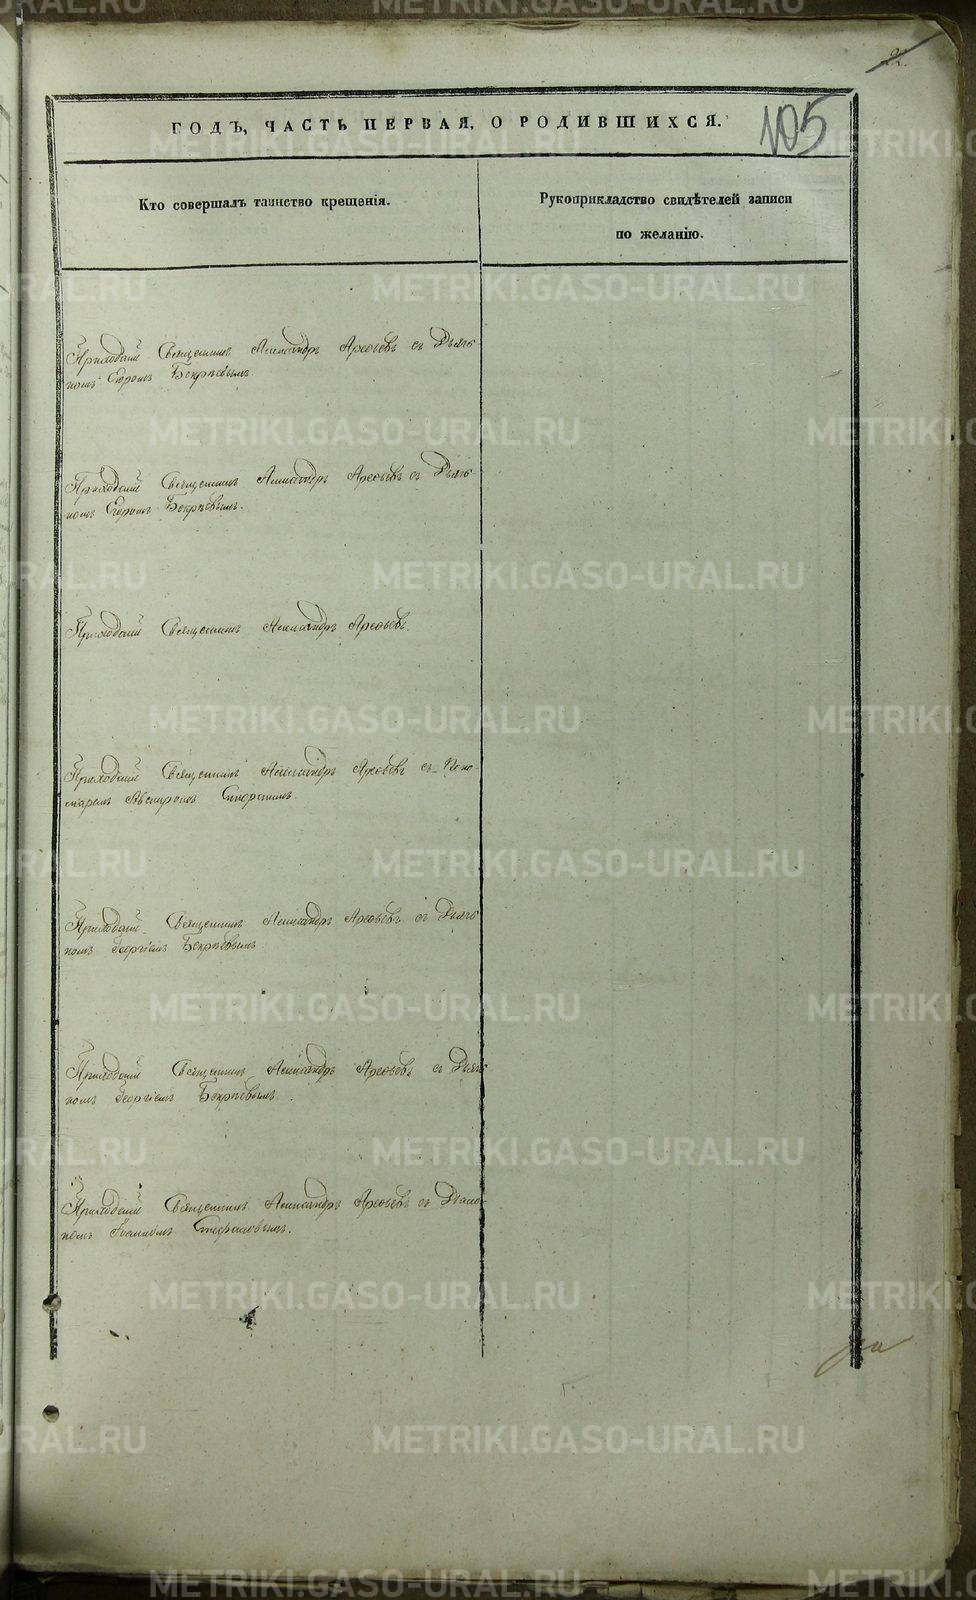 22.
105
ГОДЪ, ЧАСТЬ ПЕРВАЯ, О РОДИВШИХСЯ.
Кто совершалъ таинство крещенія.
Рукоприкладство свидѣтелей записи
по желанію.
Приходскій Священникъ Александръ Арефьевъ съ Дьяч-
комъ Егоромъ Бекрѣевымъ.
Приходскій Священникъ Александръ Арефьевъ съ Дьяч-
комъ Егоромъ Бекрѣевымъ.
Приходскій Священникъ Александръ Арефьевъ.
Приходскій Священникъ Александръ Арефьевъ съ Поно-
маремъ
Приходскій Священникъ Александръ Арефьевъ съ Дьяч-
комъ Георгіемъ Бекрѣевымъ
Приходскій Священникъ Александръ Арефьевъ съ Дьяч-
комъ Георгіемъ Бекрѣевымъ.
Приходскій Священникъ Александръ Арефьевъ съ Діако-
номъ Іоанномъ Стефановымъ.
METRIKI.GASO-URAL.RU